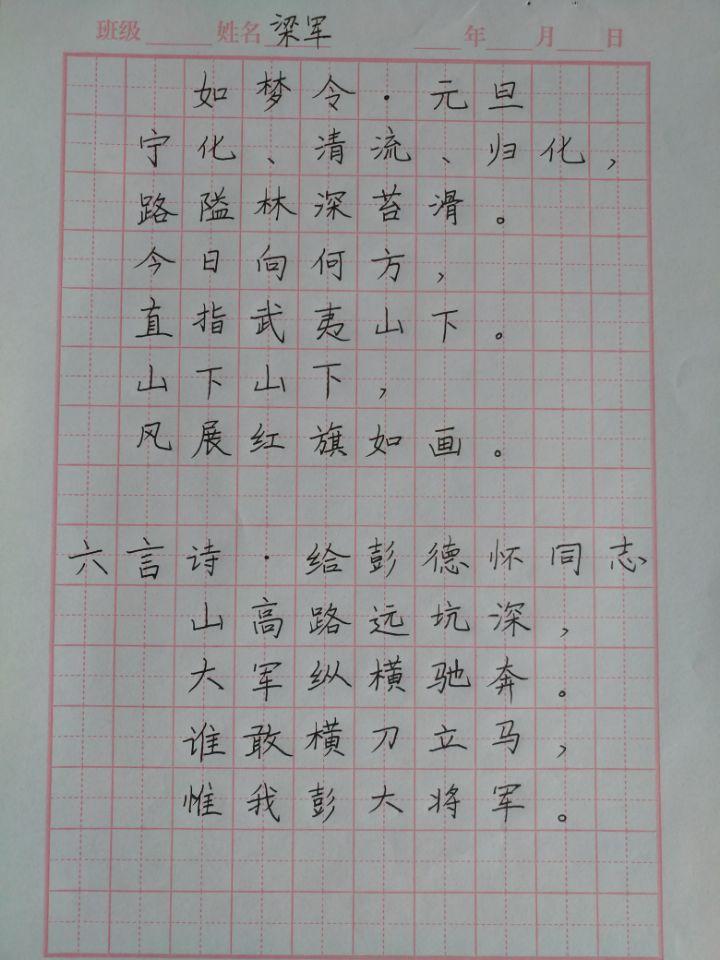 班级 姓名 梁军 年 月 日
如梦令·元旦
宁化、清流、归化，
路隘林深苔滑。
今日向何方，
直指武夷山下。
山下山下，
风展红旗如画。
六言诗·给彭德怀同志
山高路远坑深，
大军纵横驰奔。
谁敢横刀立马，
惟我彭大将军。